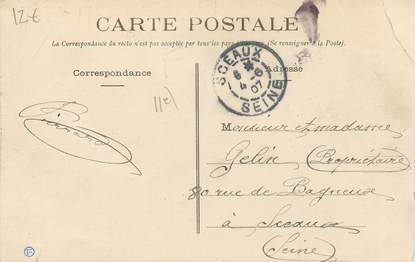 12€
CARTE POSTALE
La Correspondance du recto n'est pas acceptée par tous les pays (Se renseigner à la Poste).
Correspondance
Adresse
SCEAUX
6 * 6
4
07
SEINE
Monsieur et madame
Gelin (Propriétaire)
80 rue de Bagneux
à Sceaux
(Seine)